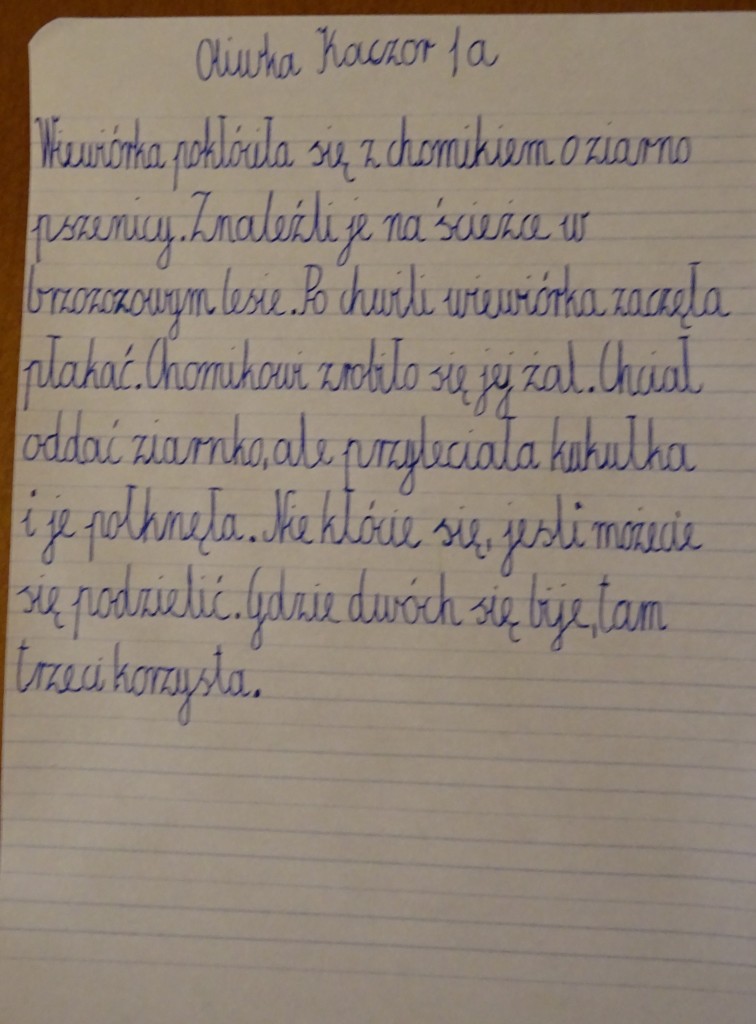 Oliwka Kaczor 1a
Wiewiórka pokłóciła się z chomikiem o ziarno
pszenicy. Znaleźli je na ścieżce w
brzozozowym lesie. Po chwili wiewiórka zaczęła
płakać. Chomikowi zrobiło się jej żal. Chciał
oddać ziarnko, ale przyleciała kukułka
i je połknęła. Nie kłócie się, jeśli możecie
się podzielić. Gdzie dwóch się bije, tam
trzeci korzysta.